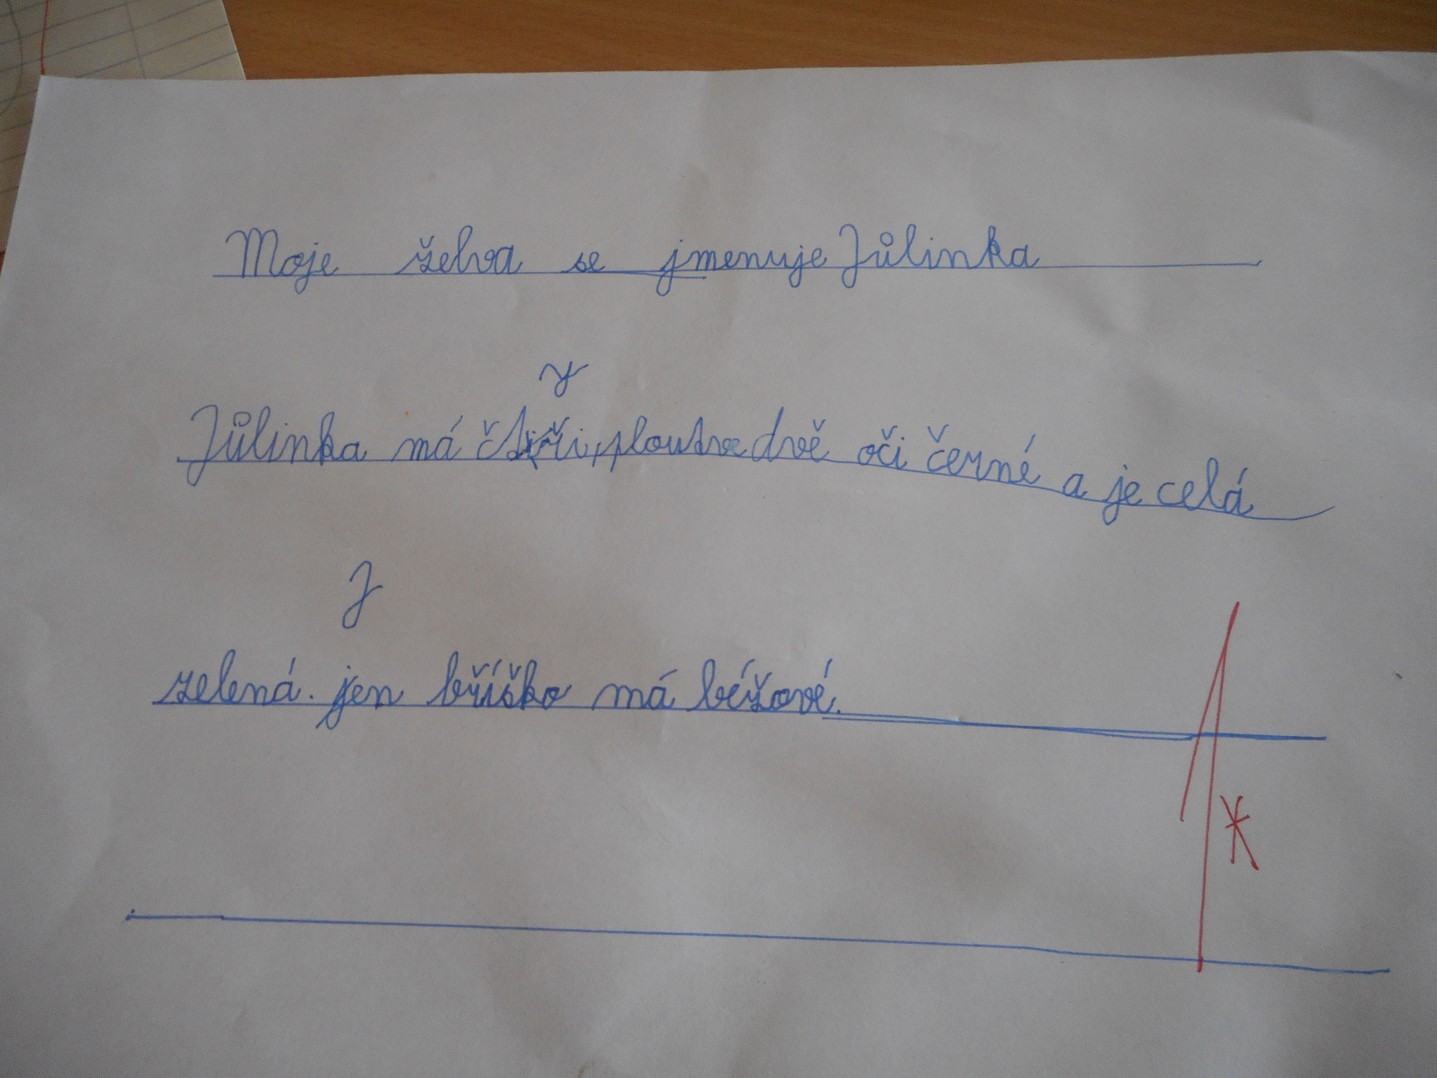 Moje želva se jmenuje Jůlinka
y
Jůlinka má čtiři, ploutve dvě oči černé a je celá
J
zelená. jen bříško má béžové.
1*